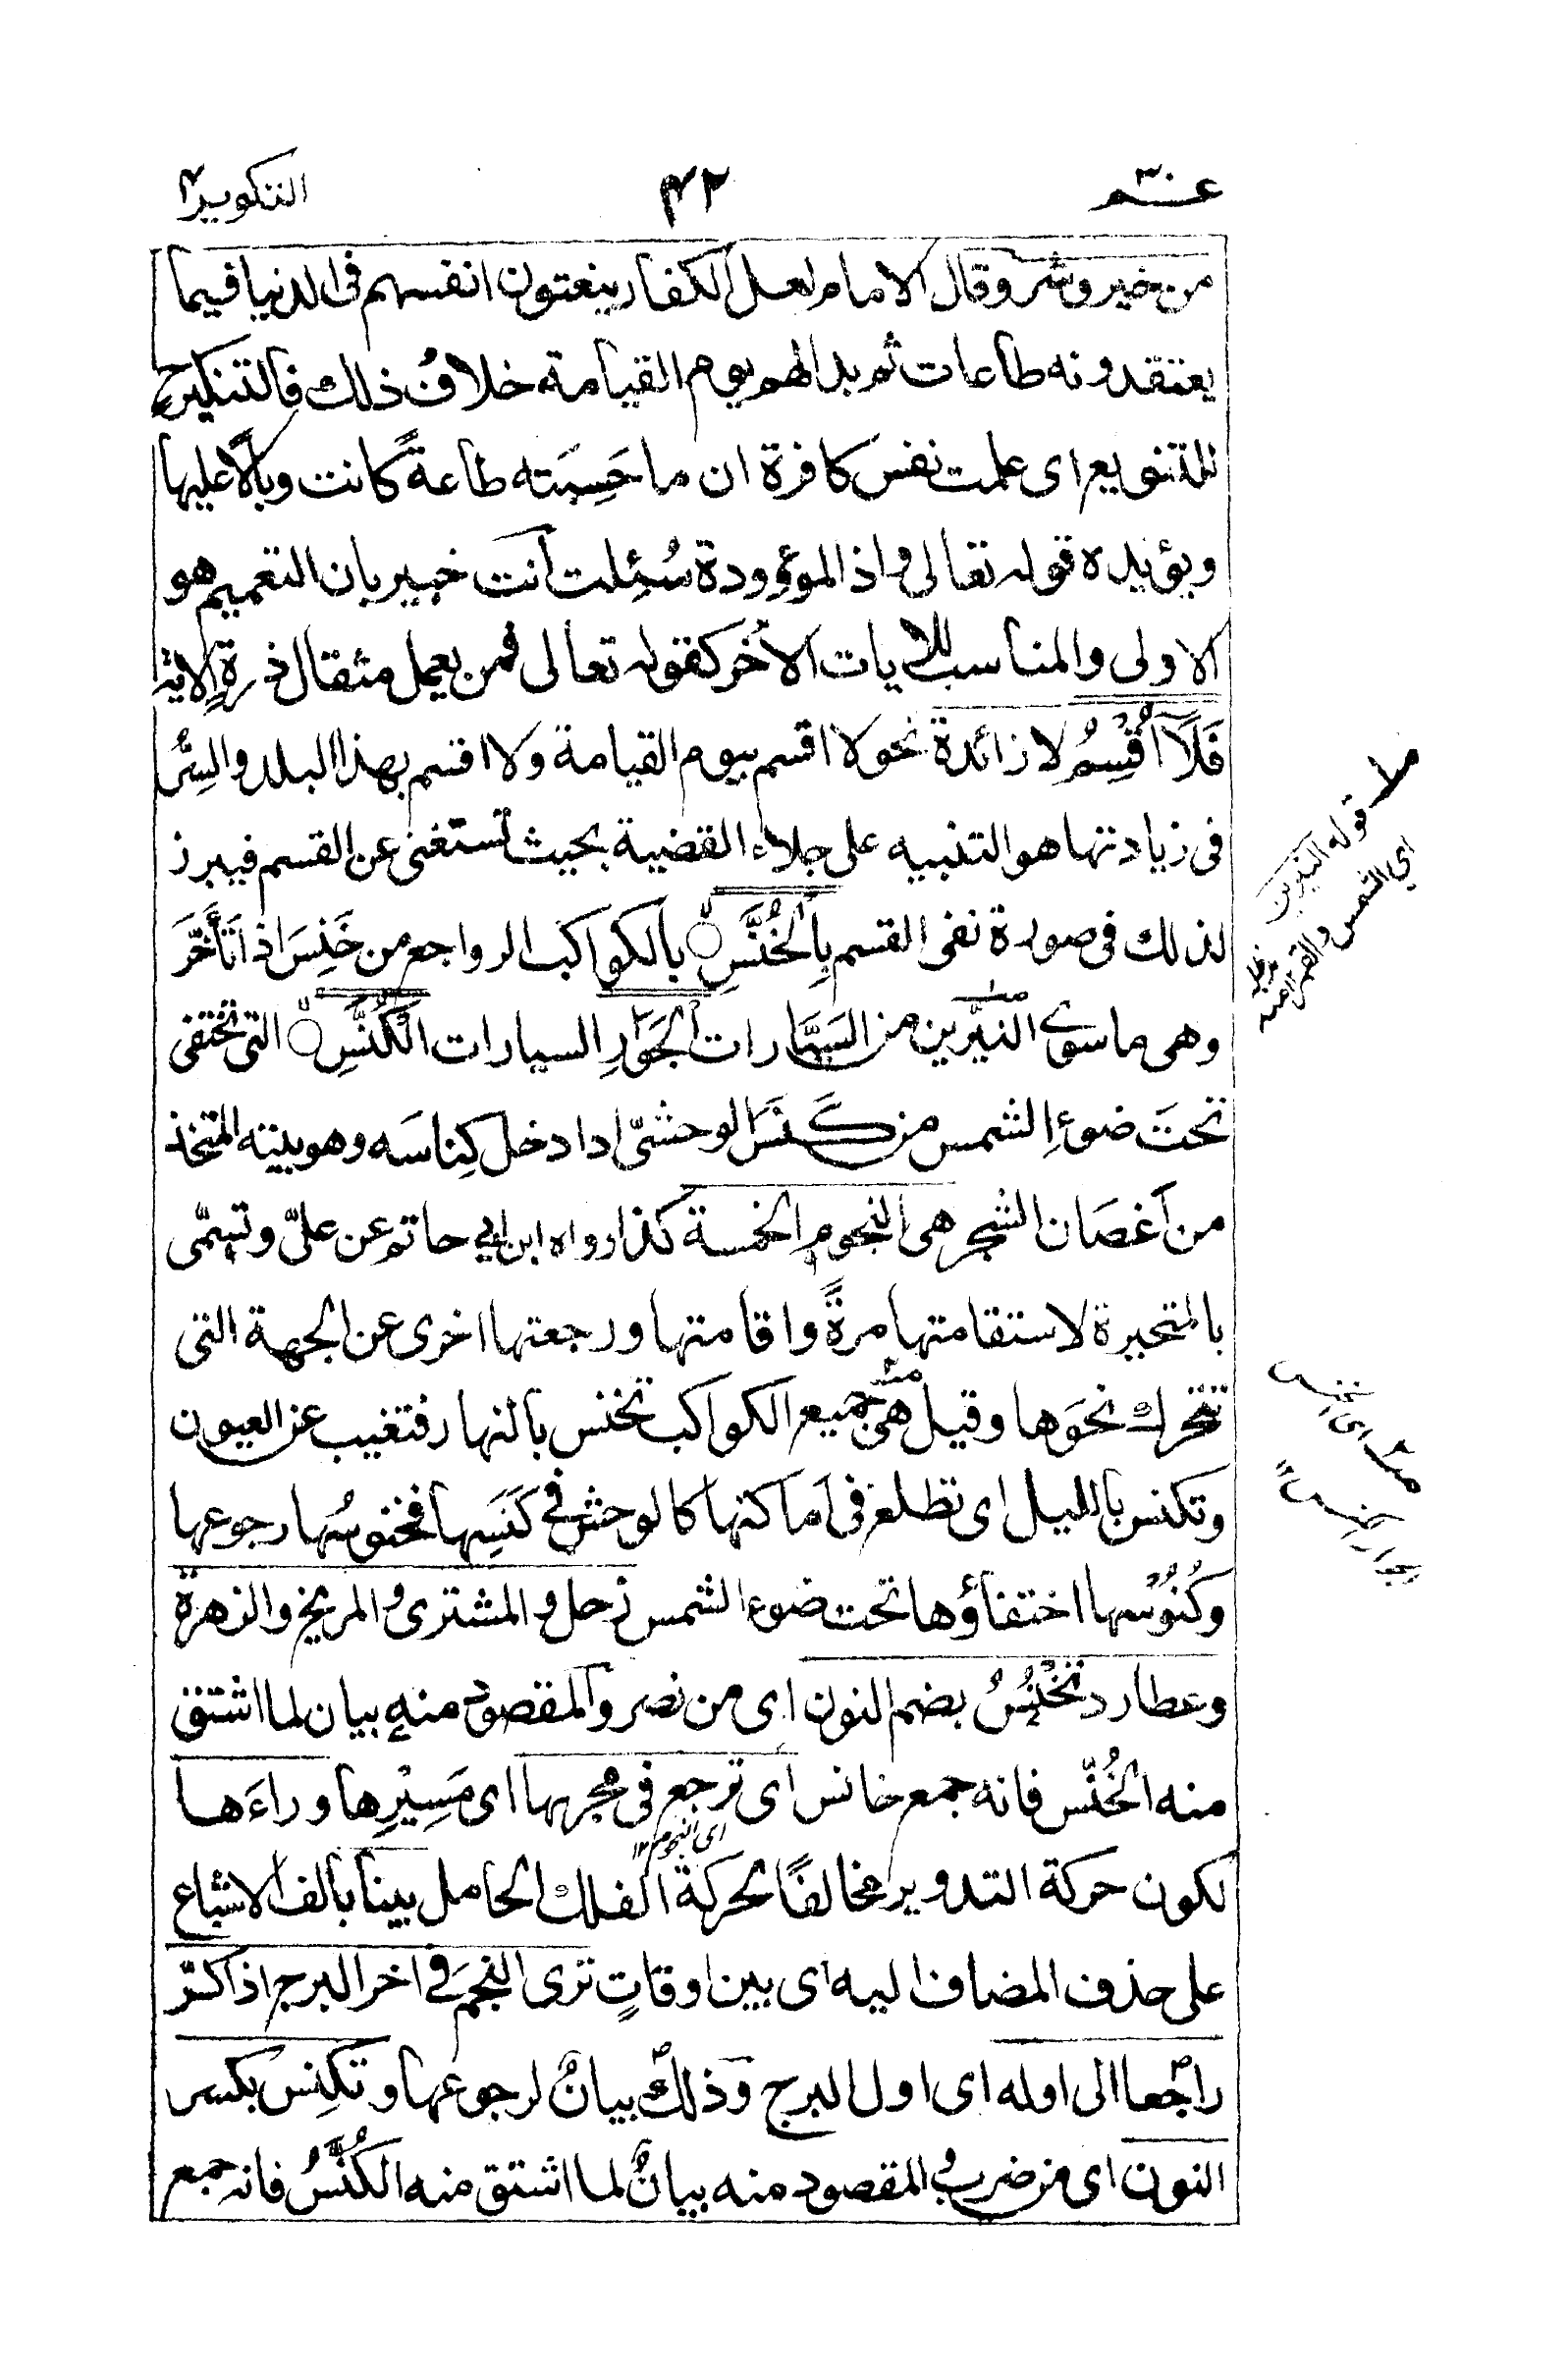 عـــم ٣٠
٤٢
التكوير
من خير وشر وقال الامام لعل الكفار ينعتون انفسهم فى الدنيا فيما
يعتقدونه طاعات ثم بدالهم يوم القيامة خلافُ ذلك فالتنكير ح
للتنويع اى علمت نفس كافرة ان ما حَسِبَته طاعةً كانت وبالًا عليها
ويؤيده قوله تعالى واذا الموءودة سُئِلت أنت خبير بان التعميم هو
الاولى والمناسب للايات الأخر كقوله تعالى فمن يعمل مثقال ذرةٍ الاية
فَلَآ اُقْسِمُ لا زائدة نحو لا اقسم بيوم القيامة ولا اقسم بهذا البلد والسِّر
فى زيادتها هو التنبيه على جلاء القضية بحيث تستغنى عن القسم فيبرز
لذلك فى صورة نفى القسم بِالْخُنَّسِ بالكواكب الرواجع من خَنِسَ اذا تأخّرَ
وهى ما سوى النيّرين من السيّارات الْجَوَارِ السيارات الْكُنَّسِ التى تختفى
تحتَ ضوءِ الشمس من كَنَسَ الوحشىّ اذا دخل كِناسَه وهو بيته المتخذ
من أغصَان الشجر هى النجوم الخمسة كذا رواه ابن ابي حاتم عن علىّ وتسمّى
بالمتحيرة لاستقامتها مرةً واقامتها ورجعتها اخرى عن الجهة التى
تتحرك نحوَها وقيل هى جميع الكواكب تخنس بالنهار فتغيب عن العيون
وتكنس بالليل اى تطلع فى اماكنها كالوحش فى كَنَسِها فخنوسُها رجوعها
وكُنُوْسُها اختفاؤها تحت ضوء الشمس زحل والمشترى والمريخ والزهرة
وعطارد تَخْنُسُ بضم النون اى من نصر والمقصود منه بيان لما اشتق
منه الخُنّس فانه جمع خانس اى ترجع فى مجريها اى مَسِيْرِها وراءَها
اى النجوم ١٢
لكون حركة التدوير مخالفًا لحركة الفلك الحامل بينا بالف الاشباع
على حذف المضاف اليه اى بين اوقاتٍ ترى النجمَ فى اخر البرج اذا كرّ
راجعا الى اوله اى اول البرج وَذلك بيانٌ لرجوعها وتكنِس بكسر
النون اى من ضرب والمقصود منه بيانٌ لما اشتق منه الكُنَّسُ فانه جمع
قوله النيرين
اي الشمس والقمر منه